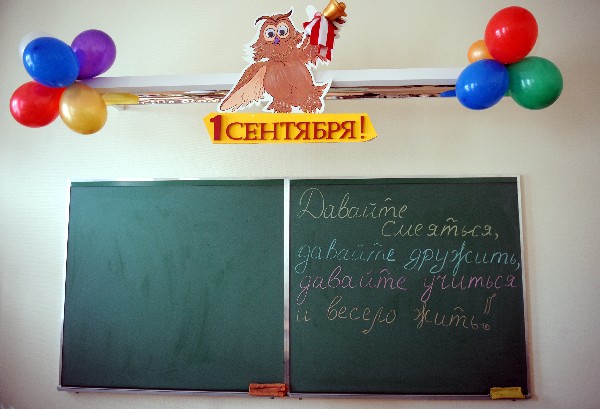 1 СЕНТЯБРЯ!
Давайте
смеяться,
давайте дружить,
давайте учиться
и весело жить!!